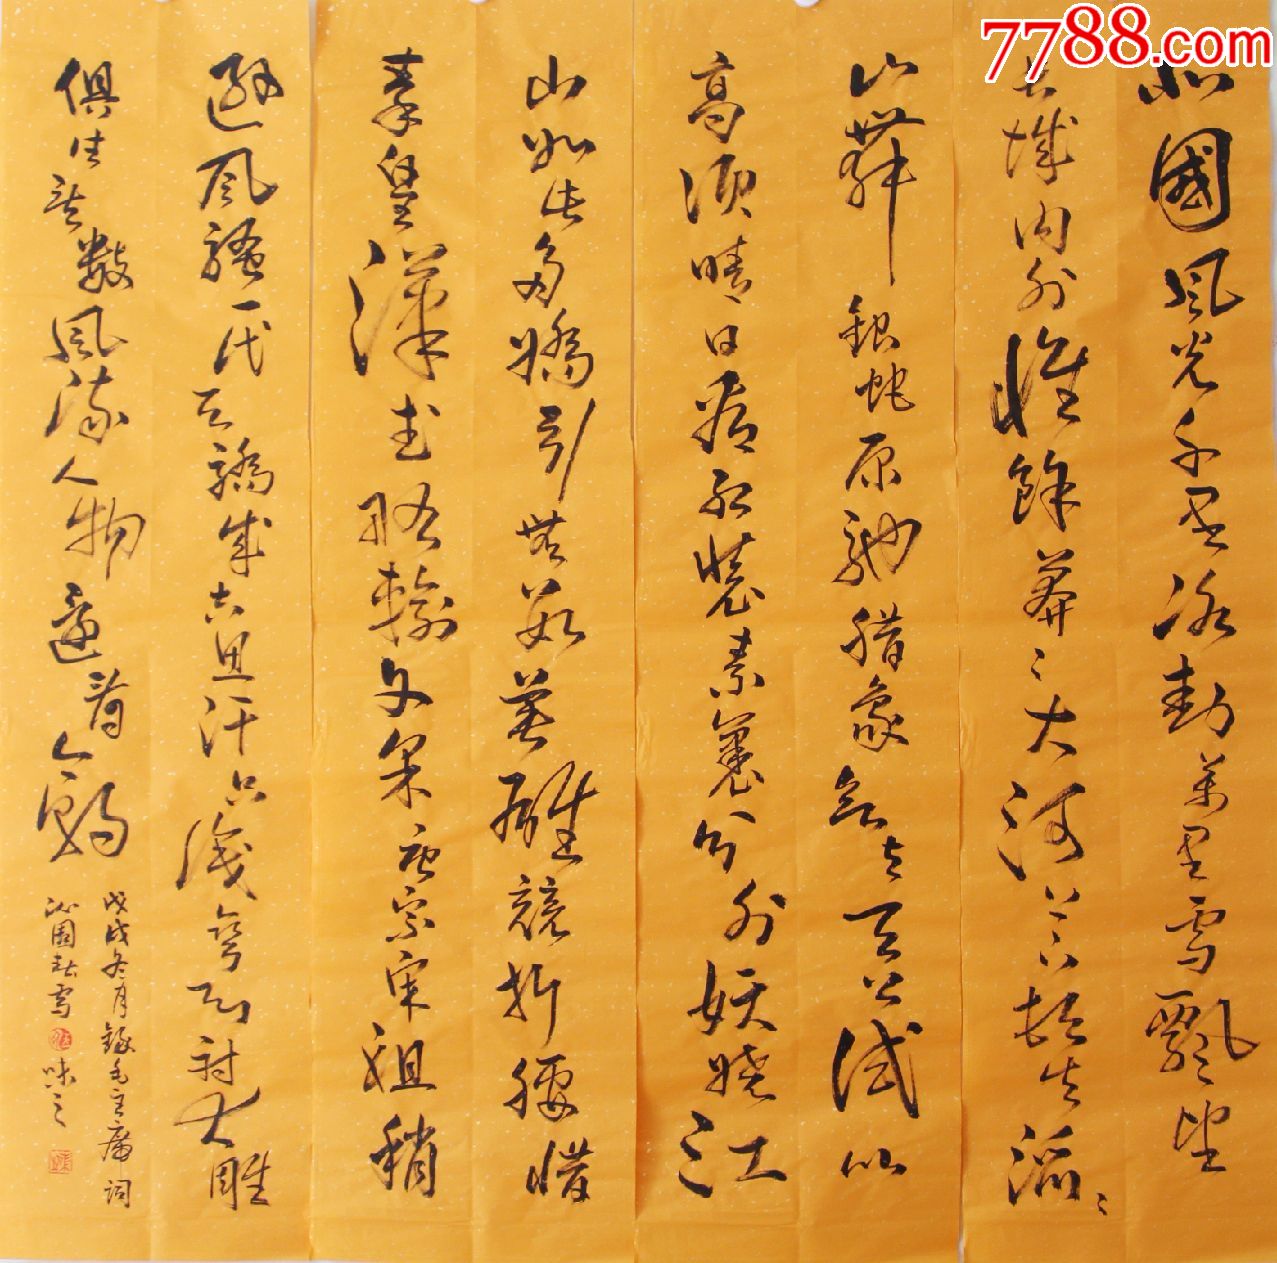 7788.com
北國風光千里冰封萬里雪飄望
長城内外惟餘莽々大河上下頓失滔々
山舞銀蛇原馳腊象欲与天公试比
高須晴日看紅裝素裹分外妖嬈江
山如此多嬌引無數英雄競折腰惜
秦皇漢武略輸文采唐宗宋祖稍
遜風騷一代天驕成吉思汗只識彎弓射大雕
俱往矣數風流人物還看今朝
戊戌冬月錄毛主席詞
沁園春雪 味之